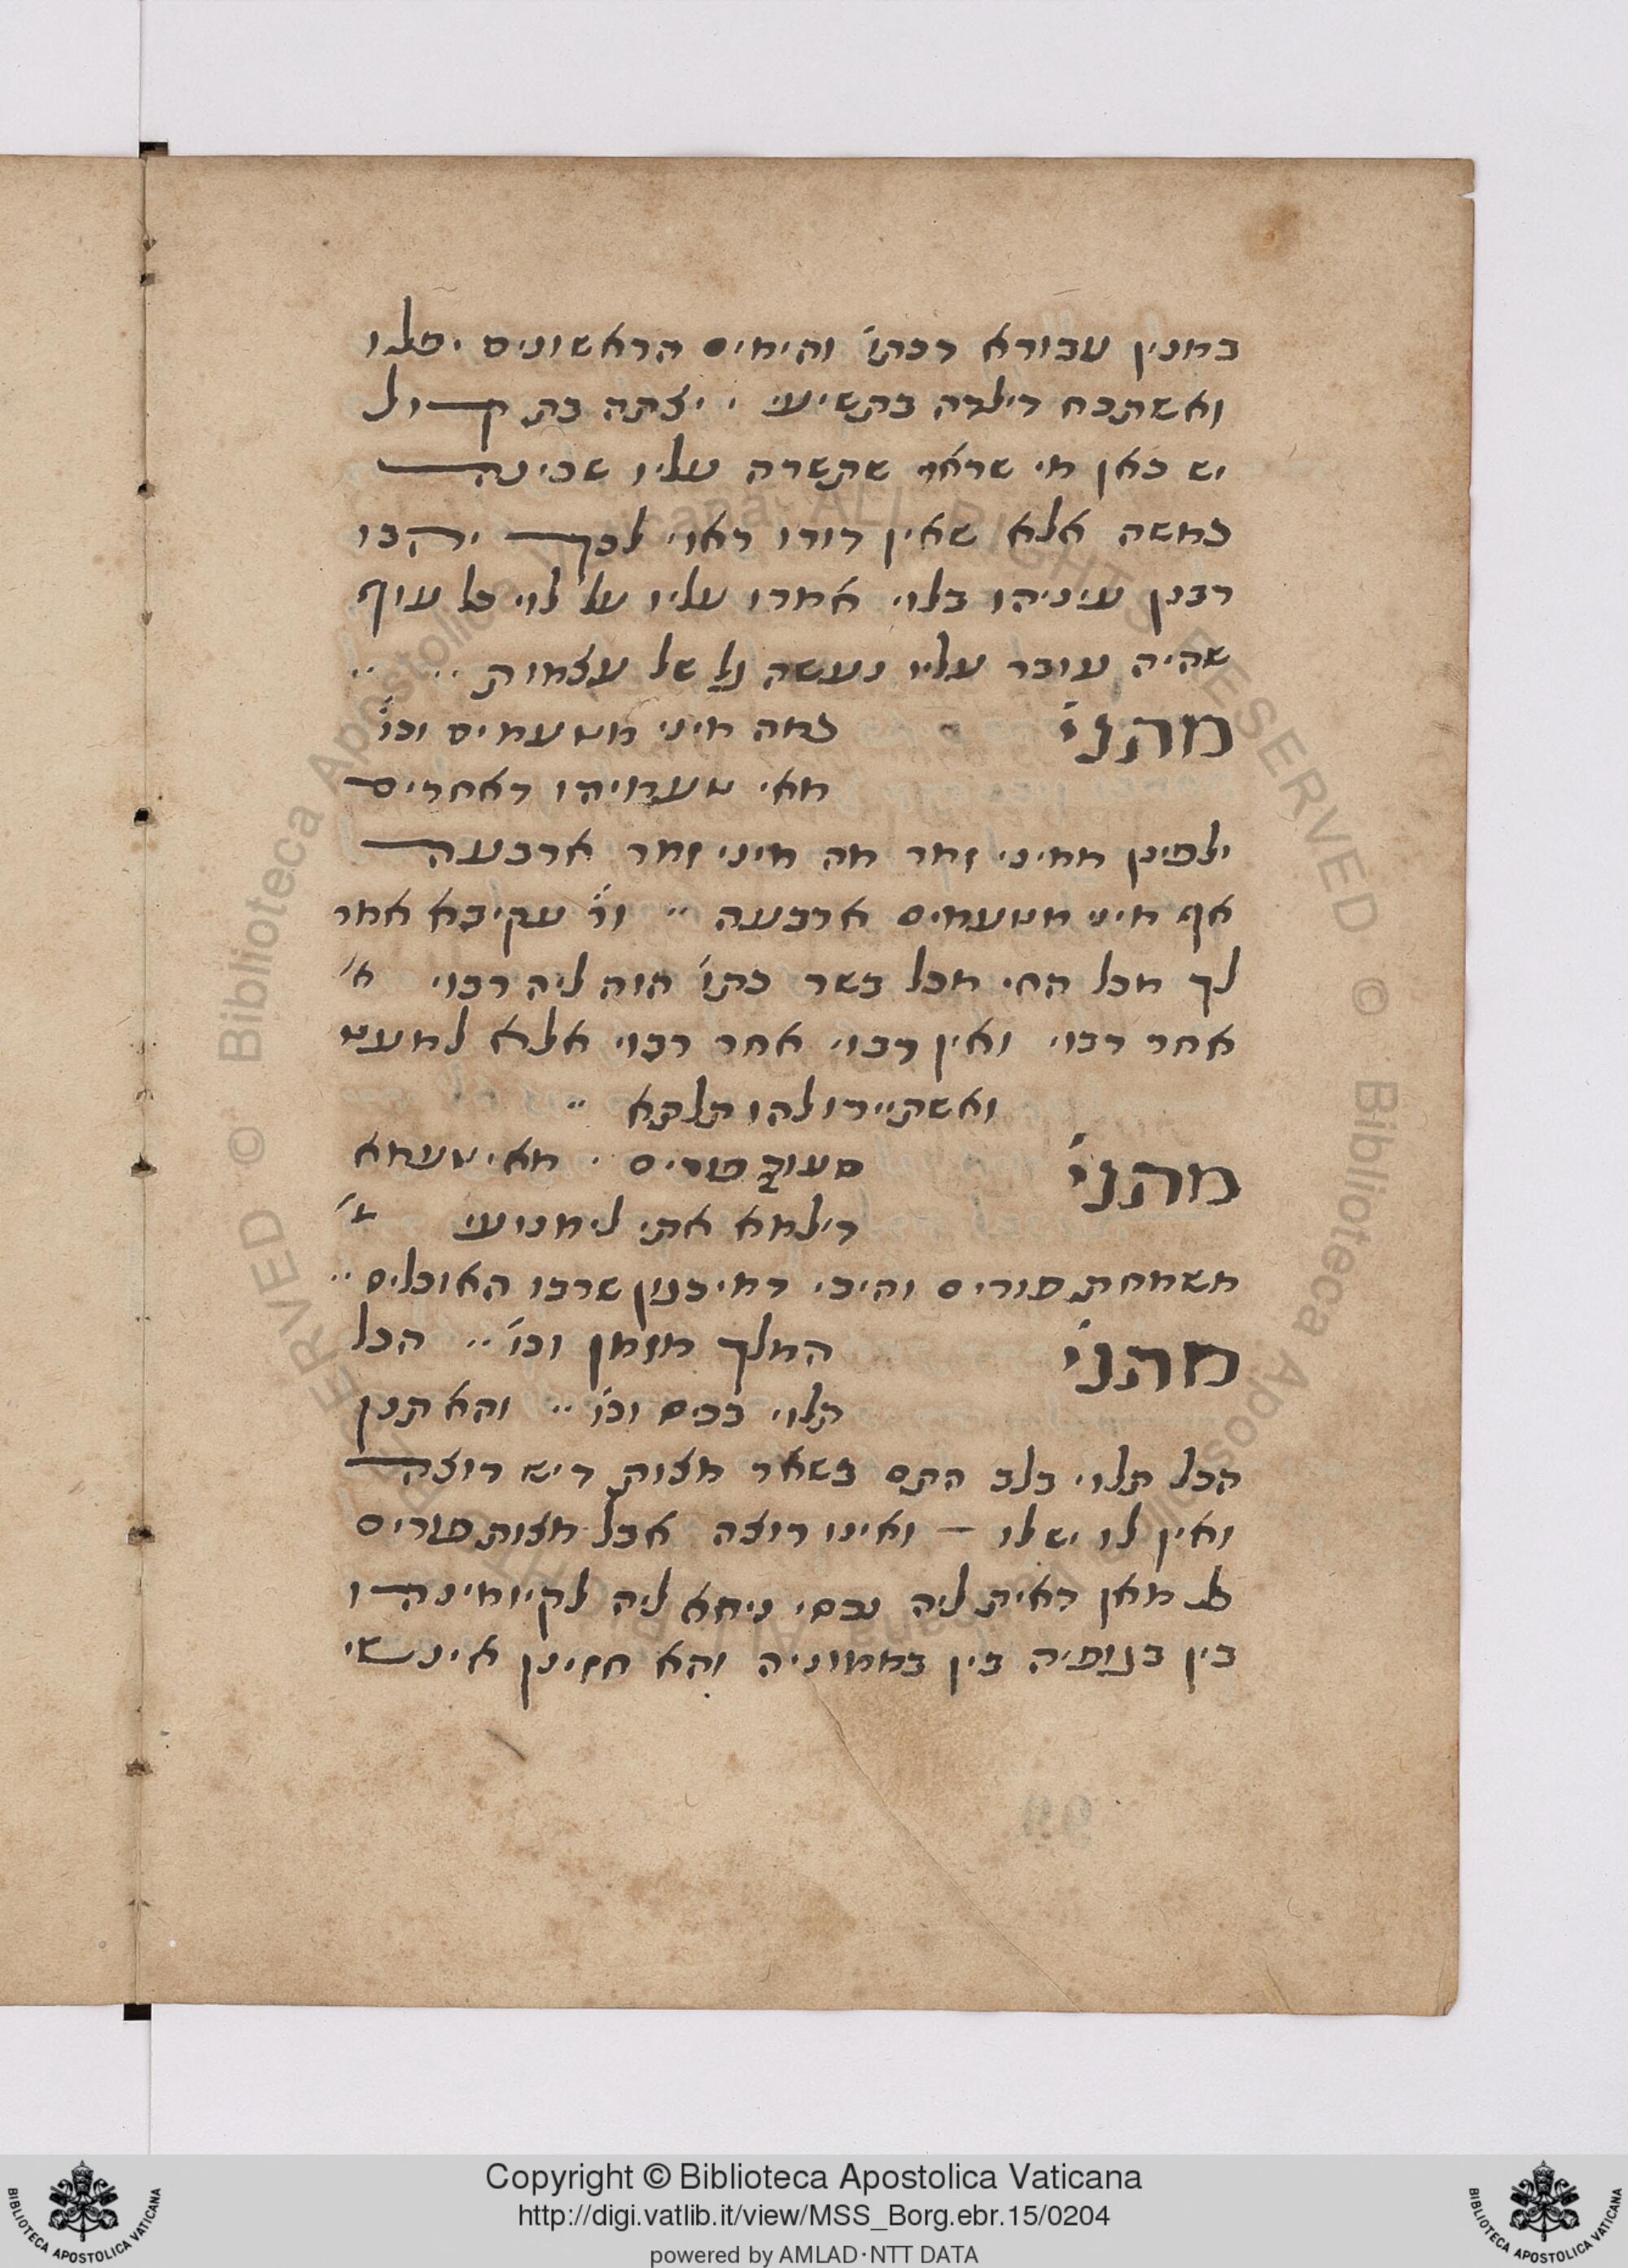 במנין עבורא דכתו׳ והימים הראשונים יפלו
ואשתכח דילדה בתשיעי · יצתה בת קול
יש כאן מי שראוי שתשרה עליו שכינה
כמשה אלא שאין דורו ראוי לכך יהבו
רבנן עיניהו בלוי אמרו עליו על לוי כל עוף
שהיה עובר עליו נעשה גל של עצמות ·· ··
מתני׳ כמה מיני מטעמים וכו׳
מאי טעמייהו דאחרים
ילפינן ממיני זמר מה מיני זמר ארבעה
אף מיני מטעמים ארבעה ·· ור׳ עקיבא אמר
לך מכל החי מכל בשר כתו׳ הוה ליה רבוי א׳
אחר רבוי ואין רבוי אחר רבוי אלא למעט
ואשתיירו להו תלתא ··
מתני׳ סעודת פורים · מאי טעמא
דילמא אתי לימנועי א׳
משמחת פורים והיכי דמי כגון שרבו האוכלים ··
מתני׳ המלך מזמן וכו׳ ·· הכל
תלוי בכיס וכו׳ ·· והא תנן
הכל תלוי בלב התם בשאר מצות דיש רוצה
ואין לו יש לו – ואינו רוצה אבל מצות פורים
כל מאן דאית ליה נכסי ניחא ליה לקיומינהו
בין בגופיה בין בממוניה והא חזינן אינשי
Copyright © Biblioteca Apostolica Vaticana
http://digi.vatlib.it/view/MSS_Borg.ebr.15/0204
powered by AMLAD·NTT DATA